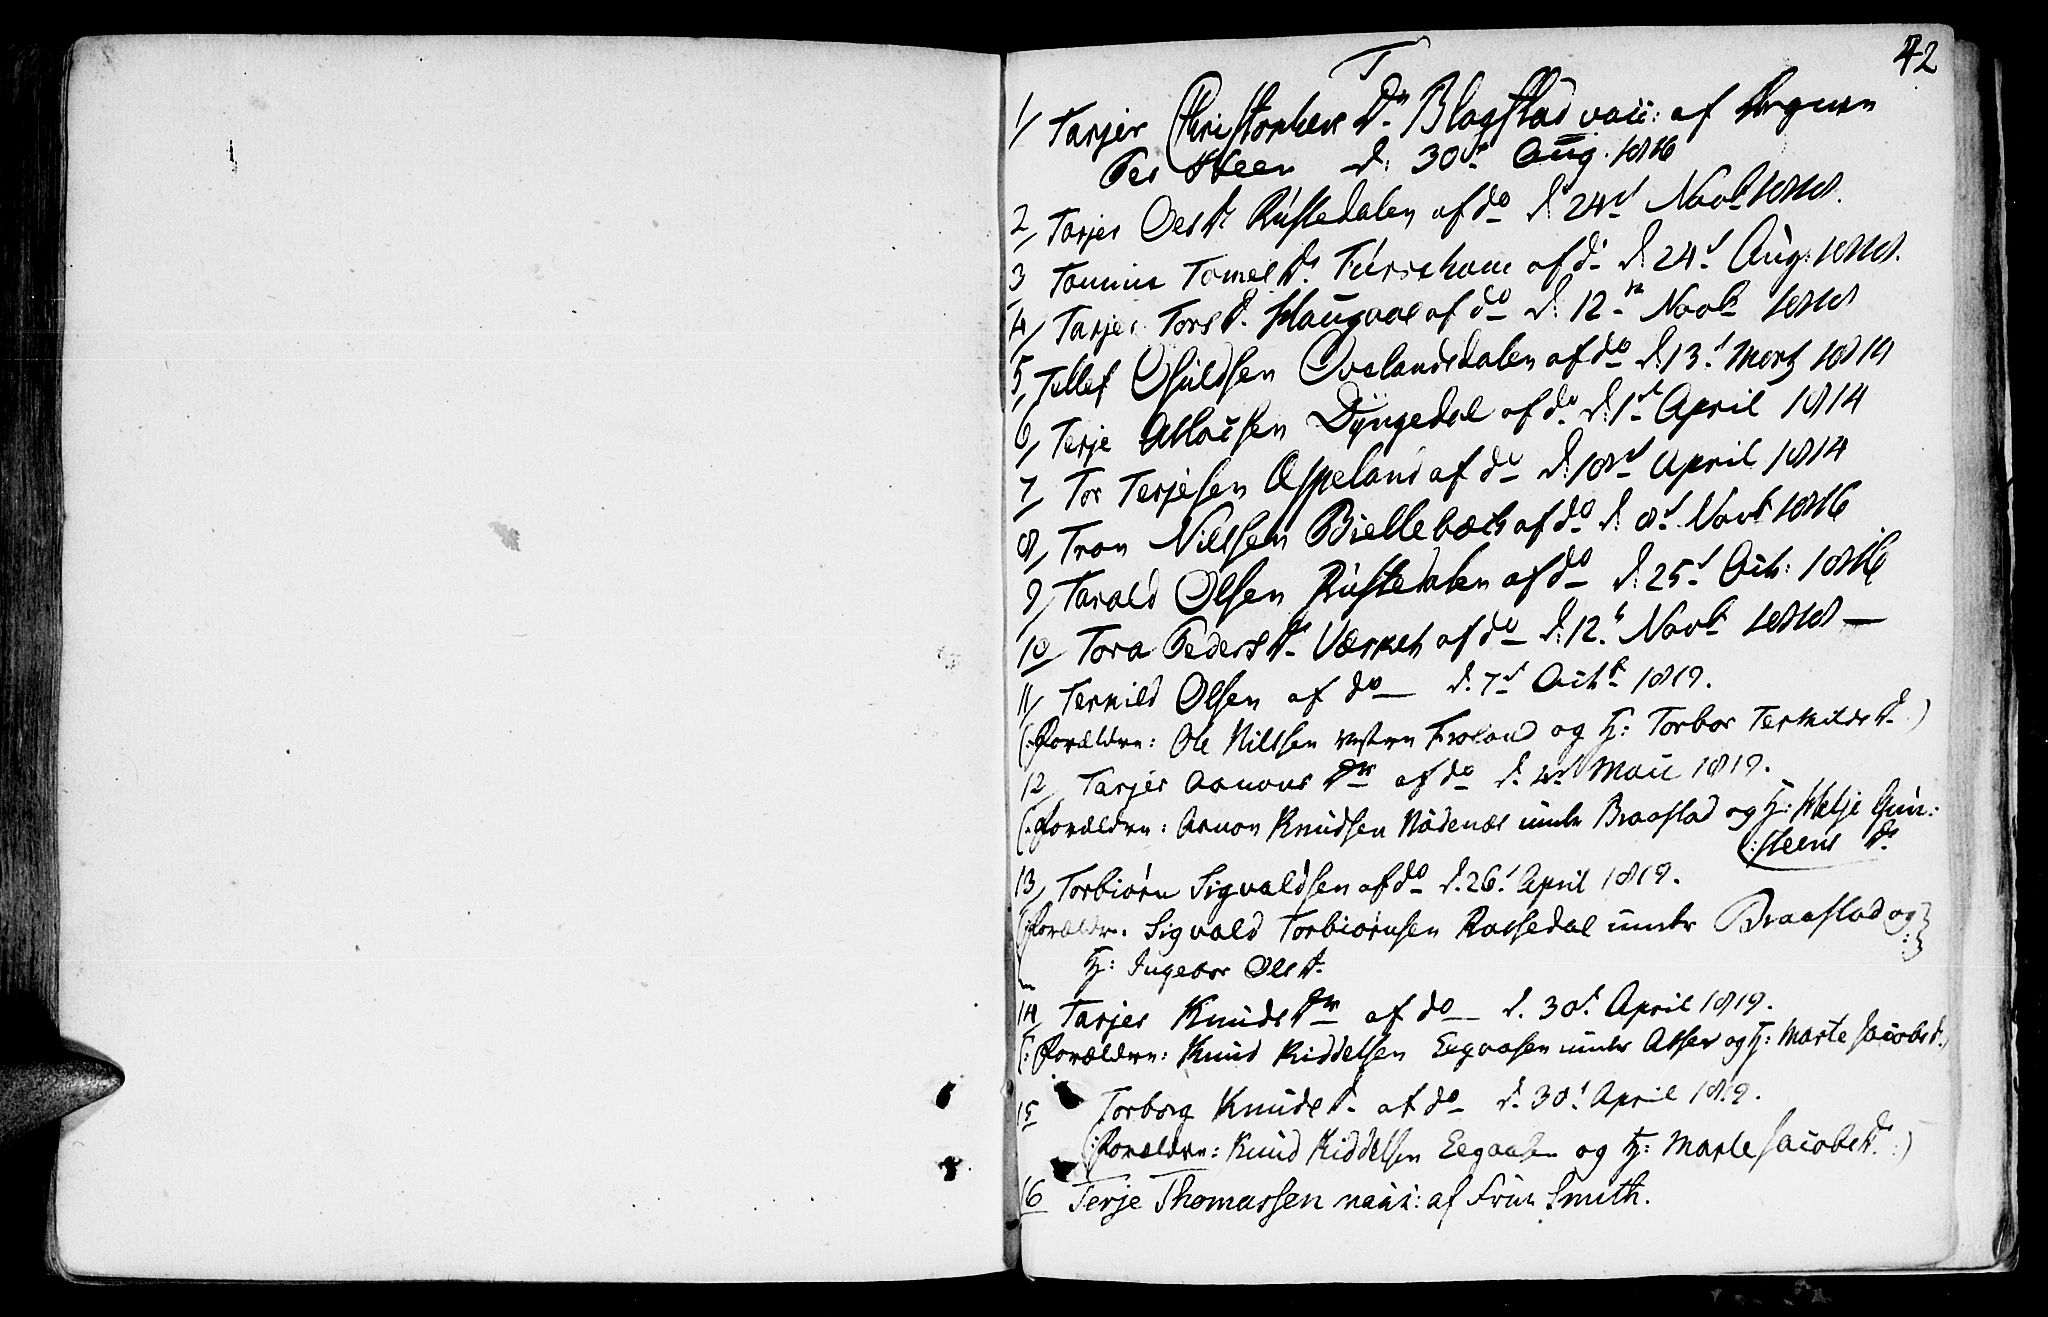 42
T
1/ Tarjer Christophers Dr Blagstad vacc: af
Per Steen d: 30te Aug. 1816
2/ Tarjer Oles Dr Rustedalen af do d: 24d Novbr 1818.
3 Tomine Tomes Dr. af do d. 24d Aug: 1818.
4/ Tarjer Tors D. Haugaas af do d. 12te Novbr 1818
5/ Tellef Osuldsen Ovelandsdalen af do d. 13d Martz 1819
6/ Terje Atlaksen Dyngedal af do d: 1ste April 1814
7/ Tor Terjesen Espeland af do d. 18de April 1814
8/ Tron Nilssen Biellebæk af do d. 8d Novb 1816
9/ Tarald Olsen Rustedalen af do d: 25d Octb: 1816
10/ Tora Peders Dr Værket af do d. 12te Novbr 1818 —
11/ Terkild Olsen af do — d. 7d Octbr 1819.
(: Forældre: Ole Nilssen vestre Froland og H: Torbor Terkilds Dr :)
12/ Tarjer Aanons Dtr af do d. 4d Maii 1819.
(: Forældre: Aanon Knudsen Nödenæs under Braastad og H: Helje Gun:
:steens Dr
13/ Torbiørn Sigvaldsen af do d. 26d April 1819.
(: Forældre: Sigvald Torbiørnsen Rossedal under Braastad og
H: Ingebor Ols D.
14/ Tarjer Knuds Dtr af do — d. 30d April 1819.
(: Forældre: Knud Kiddelsen Eegaasen under Asser og H: Marte Jacobs D. :)
15 Torborg Knuds D. af do d. 30d April 1819.
(: Forældre: Knud Kiddelsen Eegaasen og H: Marte Jacobs D. :)
16 Terje Thomassen vacc: af Frue Smith.